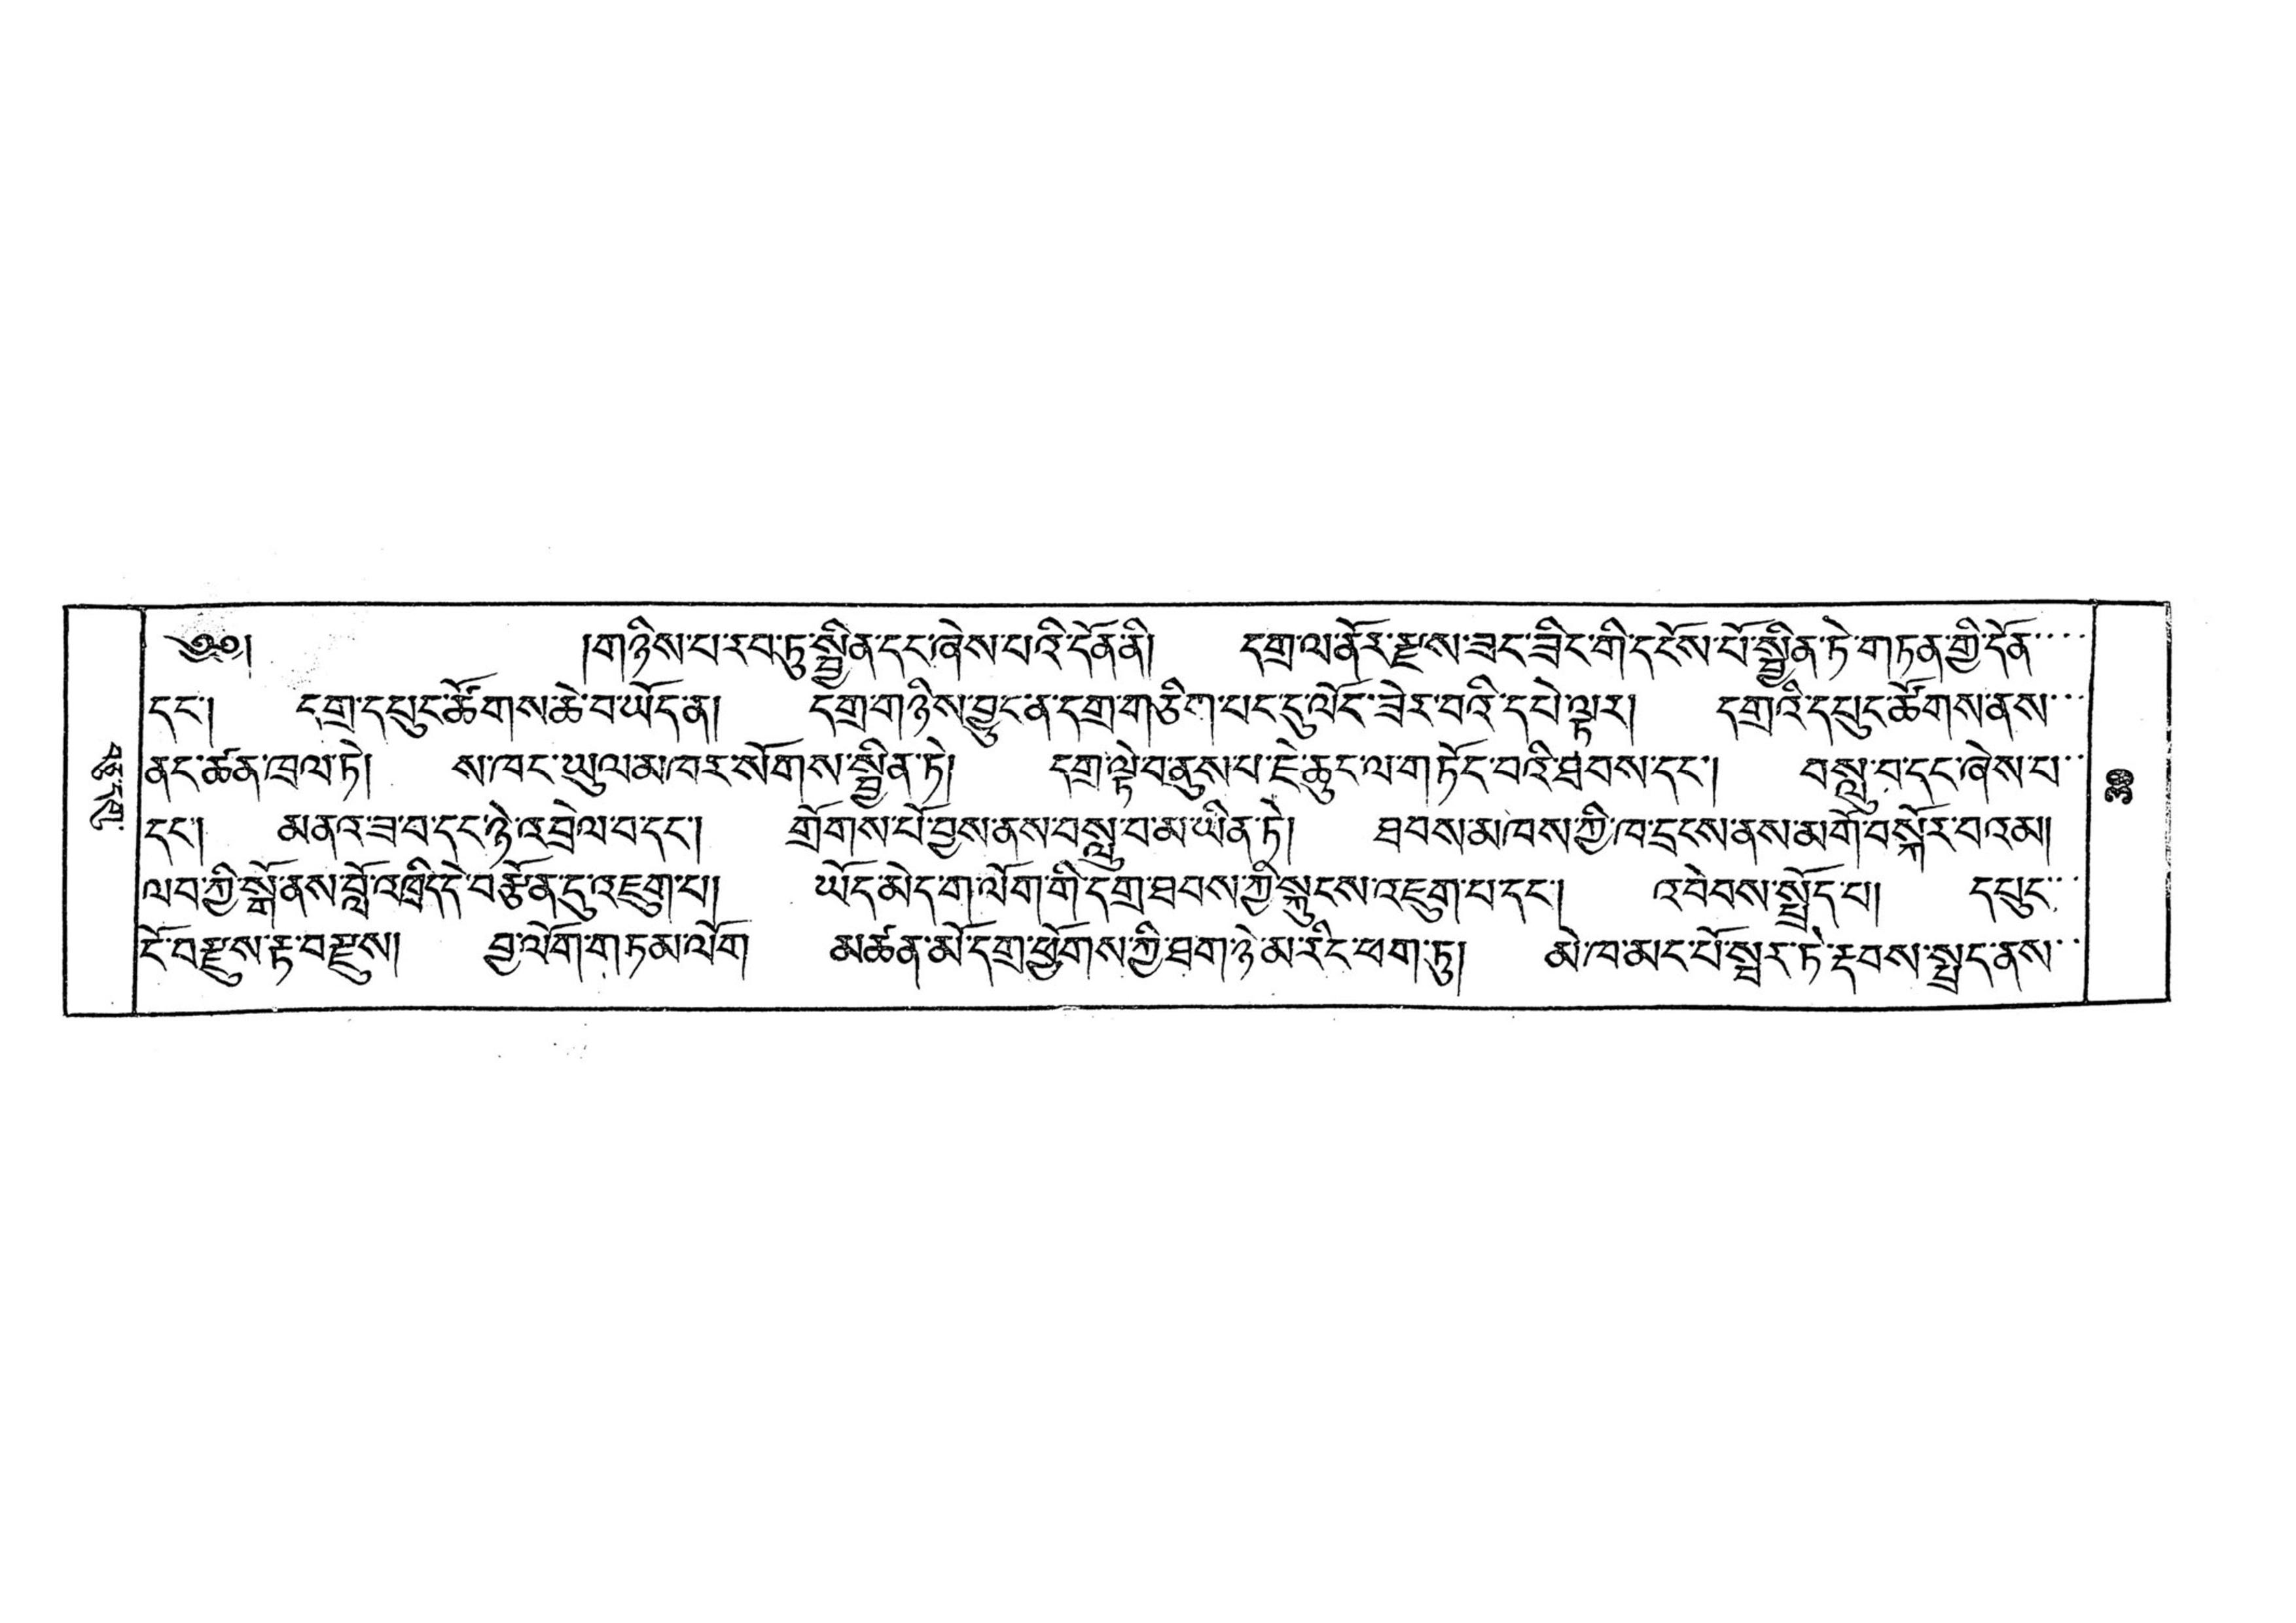 ༄༅། །གཉིས་པ་རབ་ཏུ་སྦྱིན་དང་ཞེས་པའི་དོན་ནི། དགྲ་ལ་ནོར་རྫས་ཟང་ཟིང་གི་དངོས་པོ་སྦྱིན་ཏེ་གཏན་གྱི་དོན་
དང་། དགྲ་དཔུང་ཚོགས་ཆེ་བ་ཡོད་ན། དགྲ་གཉིས་བྱུང་ན་དགྲ་གཅིག་པང་དུ་ལོང་ཟེར་བའི་དཔེ་ལྟར། དགྲའི་དཔུང་ཚོགས་ནས་
ནང་ཚན་ཁྲལ་ཏེ། ས་ཁང་ཡུལ་མཁར་སོགས་སྦྱིན་ཏེ། དགྲ་ལྟེ་བནུས་པ་ཇེ་ཆུང་ལ་གཏོང་བའི་ཐབས་དང་། བསླུ་བ་དང་ཞེས་པ་
དང་། མནའ་ཟ་བ་དང་ཉེ་འབྲེལ་བ་དང་། གྲོགས་པོ་བྱས་ནས་བསླུ་བ་མ་ཡིན་ཏེ། ཐབས་མཁས་ཀྱི་ཁ་དྲངས་ནས་མགོ་བསྐོར་བ་འམ།
ལབ་ཀྱི་སྒོ་ནས་བློ་འཁྲིད་དེ་བརྩོན་དུ་འཇུག་པ། ཡོད་མེད་ག་ལོག་གི་དགྲ་ཐབས་ཀྱི་སྐུངས་འཇུག་པ་དང་། འབེབས་སྤྲོད་པ། དཔུང་
ངོ་བརྫུས་རྟ་བརྫུས། བྱ་ལོག་གཏམ་ལོག མཚན་མོ་དགྲ་ཕྱོགས་ཀྱི་ཐག་ཉེ་མ་རིང་ཕག་ཏུ། མེ་ཁ་མང་པོ་སྤར་ཏེ་རྡབས་སྤྲད་ནས་